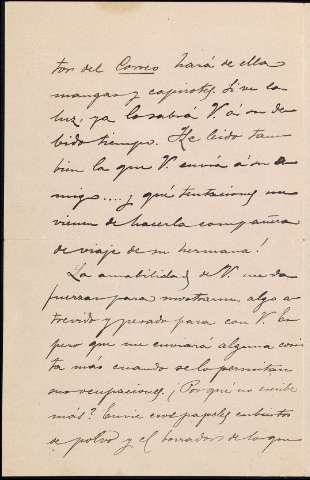 tor del Correo hará de ella
mangas y capirotes. Si ve la
luz, ya lo sabrá V. á su de
bido tiempo. He leido tam
bien la que V. envía á su a
migo.... ¡y qué tentaciones me
vienen de hacerla compañera
de viaje de su hermana!
La amabilidad de V. me da
fuerzas para mostrarme algo a
trevido y pesado para con V. Es
pero que me enviará alguna cosi
ta más cuando se lo permitan
sus ocupaciones. ¿Por qué no escribe
más? Envie esos papeles cubiertos
de polvo y el borrador de lo que